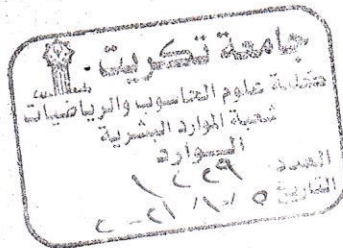 جامعة تكريت
كلية علوم الحاسوب والرياضيات
شعبة الموارد البشرية
الــواردة
العدد ١٢٢٩
التاريخ ٥ /١٠/ ٢٠٢١